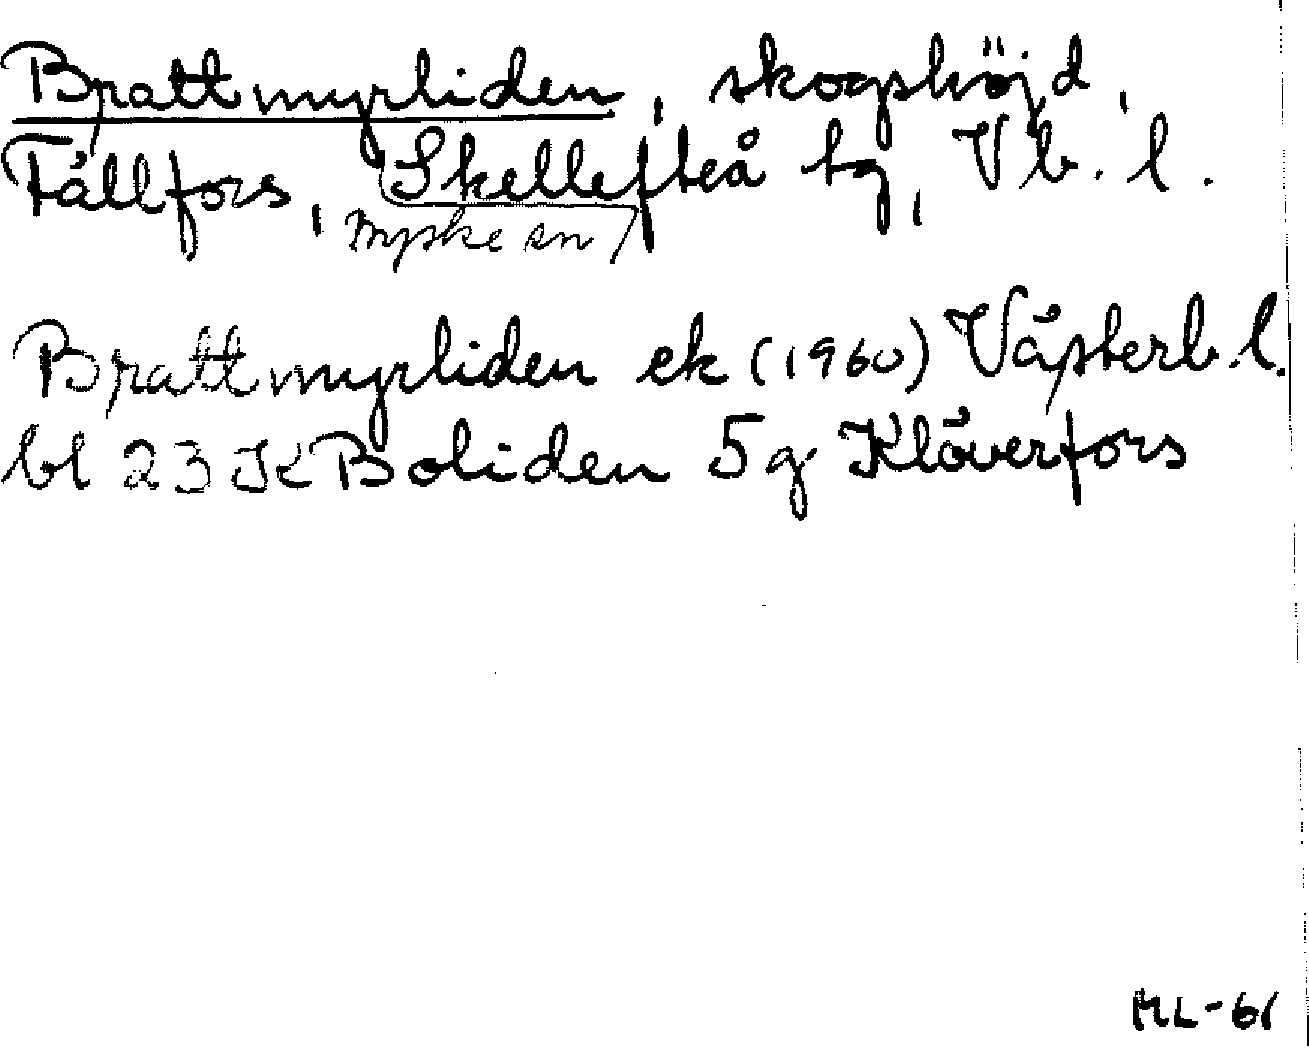 Brattmyrliden, skogshöjd,
Fällfors, Skellefteå tg, Vb. l.
Byske sn
Brattmyrliden ek (1960) Västerb. l.
bl 23 K Boliden 5g Klöverfors
ML-61